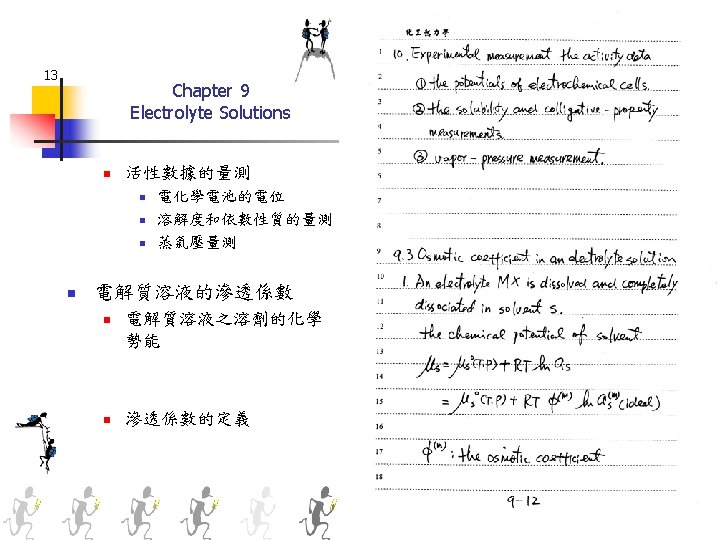 13
Chapter 9
Electrolyte Solutions
活性數據的量測
電化學電池的電位
溶解度和依數性質的量測
蒸氣壓量測
電解質溶液的滲透係數
電解質溶液之溶劑的化學
勢能
滲透係數的定義
化工熱力學
1 10. Experimental measurement the activity data
2 ① the potentials of electrochemical cells.
3 ② the solubility and colligative-property
4 measurements
5 ③ vapor-pressure measurement.
6
7
8
9 9.3 Osmotic coefficient in an electrolyte solution
10 1. An electrolyte MX is dissolved and completely
11 dissociated in solvent s.
12 the chemical potential of solvent
13 μs = μs°(T,P) + RT ln as
14
15 = μs°(T,P) + RT ϕ^(m) ln as^(m)(ideal)
16
17 ϕ^(m) : the osmotic coefficient
18
9-12